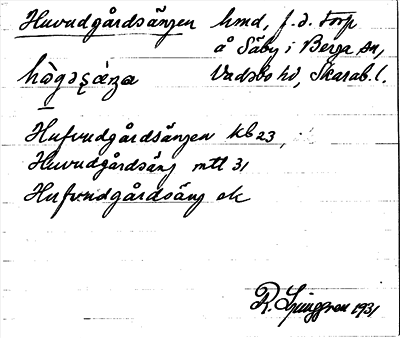 Huvudgårdsängen hmd, f.d. torp
å Säby i Berga sn,
Vadsbo hd, Skarab. l.
Hufvudgårdsängen kb 23,
Huvudgårdsäng mtl 31
Hufvudgårdsäng ek
R. Ljunggren 1931